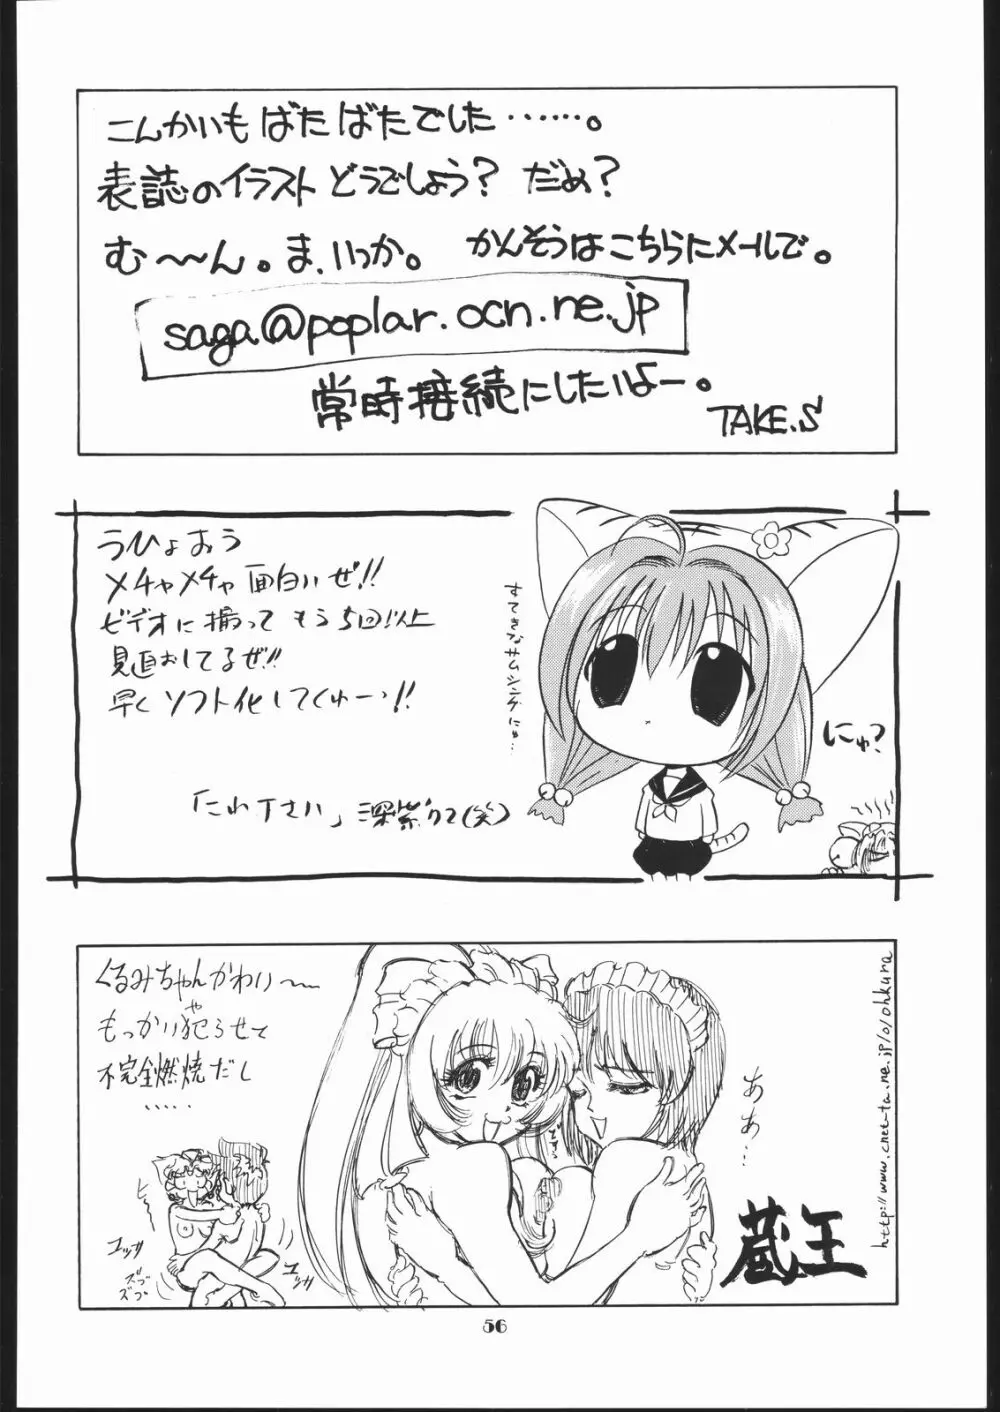 こんかいもばたばたでした……。
表誌のイラストどうでしょう？ だめ？
む〜〜ん。ま、いっか。 かんそうはこちらにメールで。
saga@poplar.ocn.ne.jp
常時接続にしたいよー。
TAKE.S
うひょおう
メチャメチャ面白いぜ!!
ビデオに撮ってもう5回以上
見直おしてるぜ!!
早くソフト化してくゅーっ!!
すてきなサムシングにゅ…
にゅ？
くるみちゃんかわい〜
もっかい犯らせて
や
不完全燃焼だし
……
あぁ
あぁ…
蔵王
http://www.cnet-ta.ne.jp/o/ohkura
56